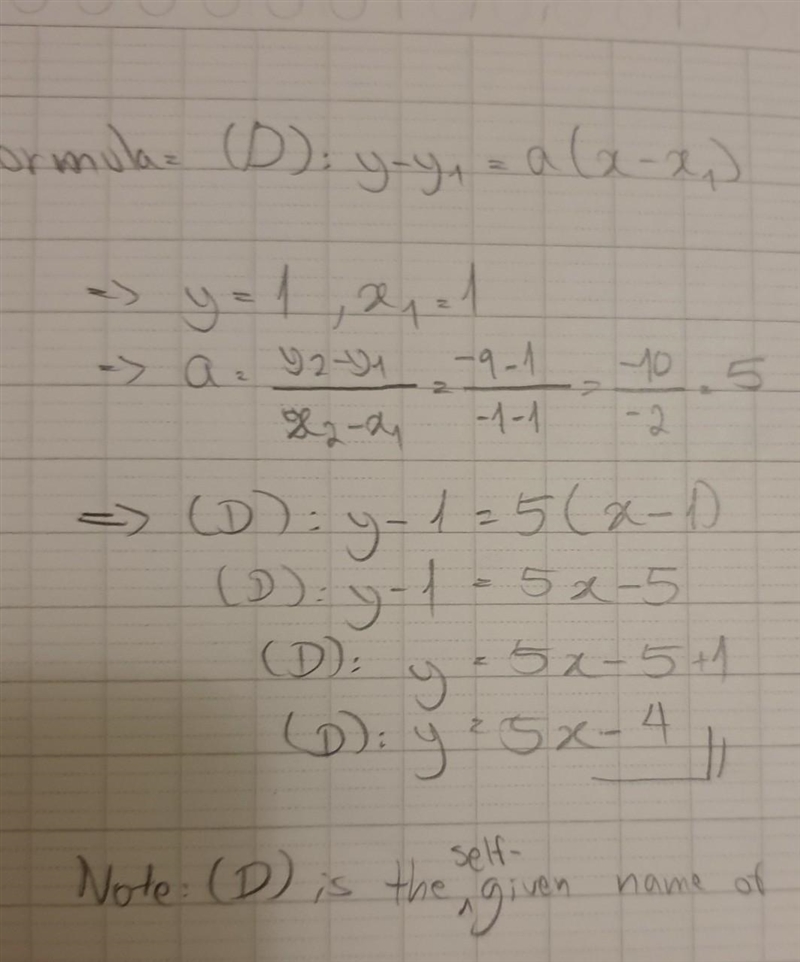 ormula= (D): y-y₁ = a(x-x₁)
=> y = 1 , x₁ = 1
=> a = (y₂-y₁)/(x₂-x₁) = (-9-1)/(-1-1) = -10/-2 = 5
=> (D): y-1 = 5(x-1)
(D): y-1 = 5x-5
(D): y = 5x-5+1
(D): y = 5x-4
Note: (D) is the self-given name of